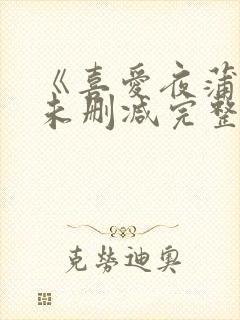 《喜爱夜蒲
未删减完整
克劳迪奥